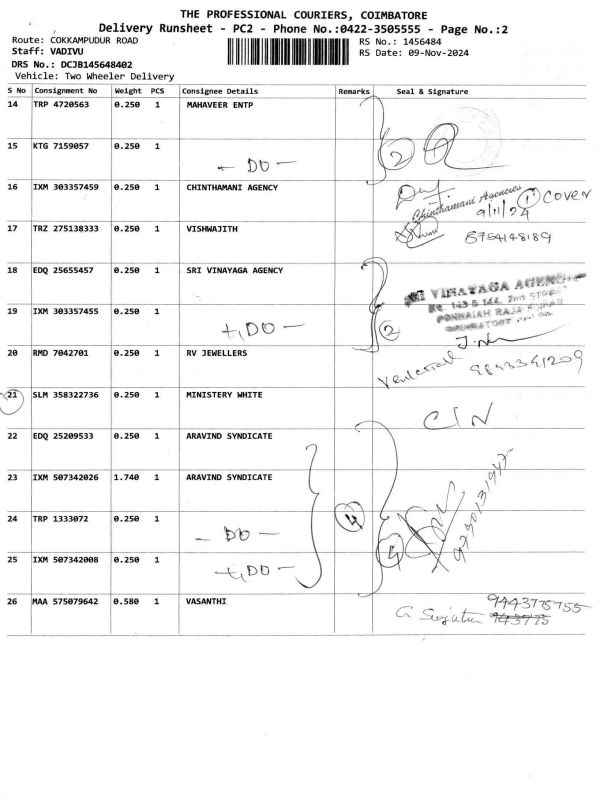 THE PROFESSIONAL COURIERS, COIMBATORE
Delivery Runsheet - PC2 - Phone No.:0422-3505555 - Page No.:2
Route: COKKAMPUDUR ROAD
RS No.: 1456484
Staff: VADIVU
RS Date: 09-Nov-2024
DRS No.: DCJB145648402
Vehicle: Two Wheeler Delivery
S No Consignment No Weight PCS Consignee Details Remarks Seal & Signature
14 TRP 4720563 0.250 1 MAHAVEER ENTP
15 KTG 7159057 0.250 1
- DO - 2
16 IXM 303357459 0.250 1 CHINTHAMANI AGENCY
Chinthamani Agencies 1 Cover
9/11/24
17 TRZ 275138333 0.250 1 VISHWAJITH 8754148189
18 EDQ 25655457 0.250 1 SRI VINAYAGA AGENCY
SRI VINAYAGA AGENCY
143 & 144, 2nd STREET
PONNAIAH RAJA
19 IXM 303357455 0.250 1
DO - 2
20 RMD 7042701 0.250 1 RV JEWELLERS 9843341209
21 SLM 358322736 0.250 1 MINISTERY WHITE
C/N
22 EDQ 25209533 0.250 1 ARAVIND SYNDICATE
23 IXM 507342026 1.740 1 ARAVIND SYNDICATE
24 TRP 1333072 0.250 1 4
- DO -
25 IXM 507342008 0.250 1
DO -
26 MAA 575079642 0.580 1 VASANTHI 9443775755
G Sujatha 943775